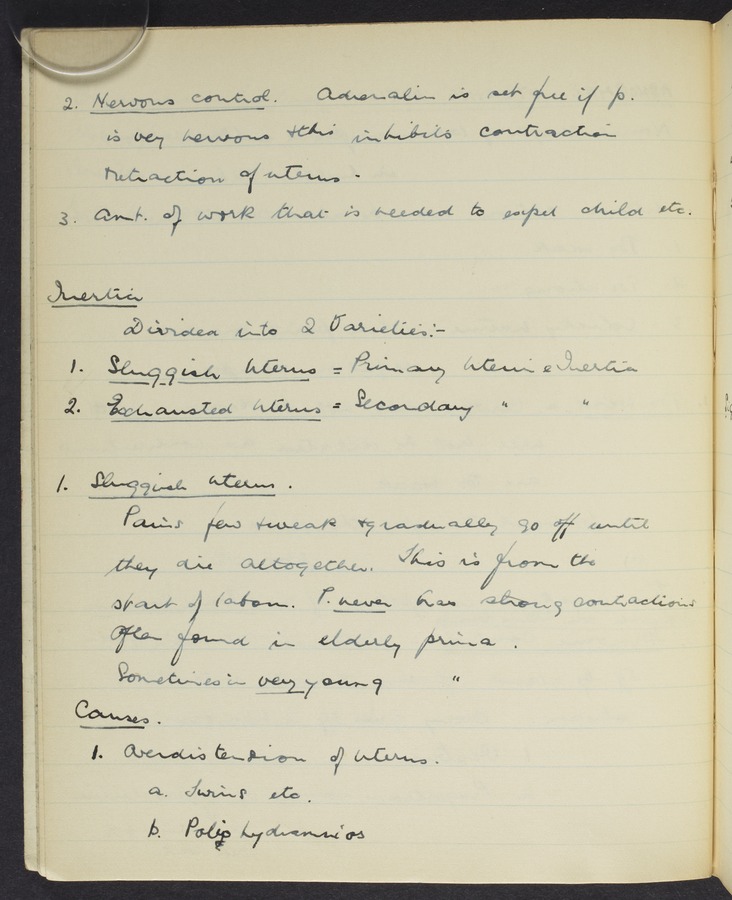 2. Nervous control. Adrenalin is set free if p.
is very nervous & this inhibits contraction
retraction of uterus.
3. Amt. of work that is needed to expel child etc.
Inertia
Divided into 2 Varieties:-
1. Sluggish Uterus = Primary Uterine Inertia
2. Exhausted Uterus = Secondary " "
1. Sluggish Uterus.
Pains few & weak & gradually go off until
they die altogether. This is from the
start of labour. P. never has strong contractions
Often found in elderly prima.
Sometimes in very young "
Causes.
1. Overdistension of Uterus.
a. Twins etc.
b. Polyhydramnios